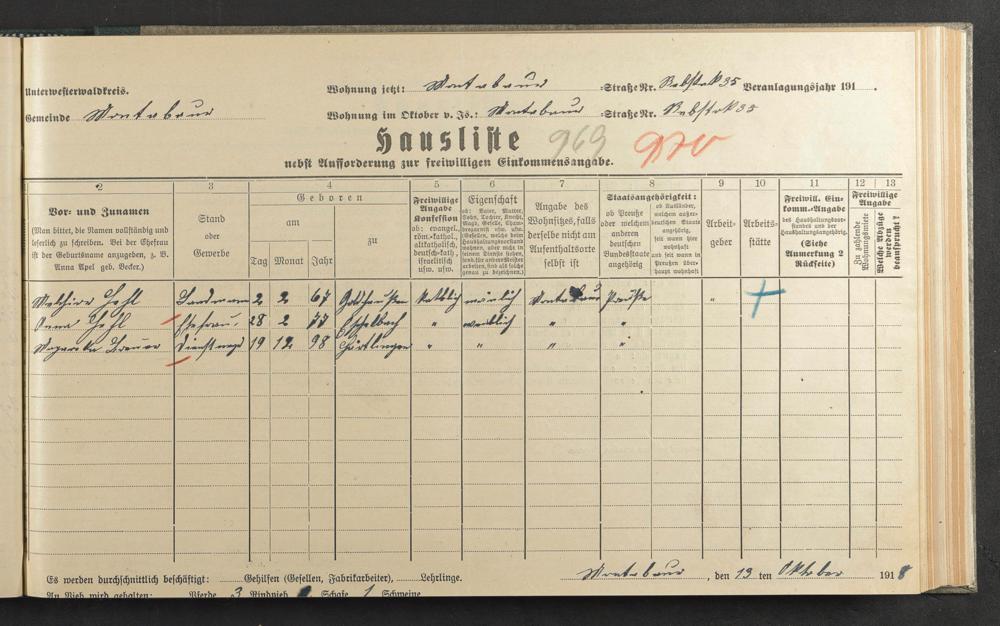 Unterwesterwaldkreis. Wohnung jetzt: Montabaur Straße Nr. Rebstock 35 Veranlagungsjahr 191 .
Gemeinde Montabaur Wohnung im Oktober v. Js.: Montabaur Straße Nr. Rebstock 35
Hausliste 969 970
nebst Aufforderung zur freiwilligen Einkommensangabe.
2 3 4 5 6 7 8 9 10 11 12 13
Vor- und Zunamen
(Man bittet, die Namen vollständig und
leserlich zu schreiben. Bei der Ehefrau
ist der Geburtsname anzugeben, z. B.
Anna Apel geb. Becker.)
Stand
oder
Gewerbe
Geboren
am
Tag Monat Jahr
zu
Freiwillige
Angabe
Konfession
ob: evangel.
röm.-kathol.
altkatholisch,
deutsch-kath.,
israelitisch
usw. usw.
Eigenschaft
ob: Vater, Mutter,
Sohn, Tochter, Knecht,
Magd, Geselle,
Angabe des
Wohnsitzes, falls
derselbe nicht am
Aufenthaltsorte
selbst ist
Staatsangehörigkeit:
ob Preuße
oder welchem
anderen
deutschen
Bundesstaate
angehörig
ob Ausländer,
welchem außer-
deutschen Staate
angehörig,
seit wann hier
wohnhaft
und seit wann in
Preußen über-
haupt wohnhaft
Arbeit-
geber
Arbeits-
stätte
Freiwill. Ein-
komm.-Angabe
des Haushaltungsvor-
standes und der
Haushaltungsangehörig.
(Siehe
Anmerkung 2
Rückseite)
Freiwillige
Angabe
Zu zahlende
Wohnungsmiete
Welche Abzüge
werden
beansprucht?
Melchior Hehl Landmann 2 2 67 kathlich mänlich Montabaur Preuße "
Anna Hehl Ehefrau 28 2 77 Eschelbach " weiblich " "
Dienstmagd 19 12 98 Härtlingen " " " "
Es werden durchschnittlich beschäftigt: Gehilfen (Gesellen, Fabrikarbeiter), Lehrlinge. Montabaur, den 13 ten Oktober 1918
An Vieh wird gehalten: Pferde 3 Rindvieh Schafe 1 Schweine